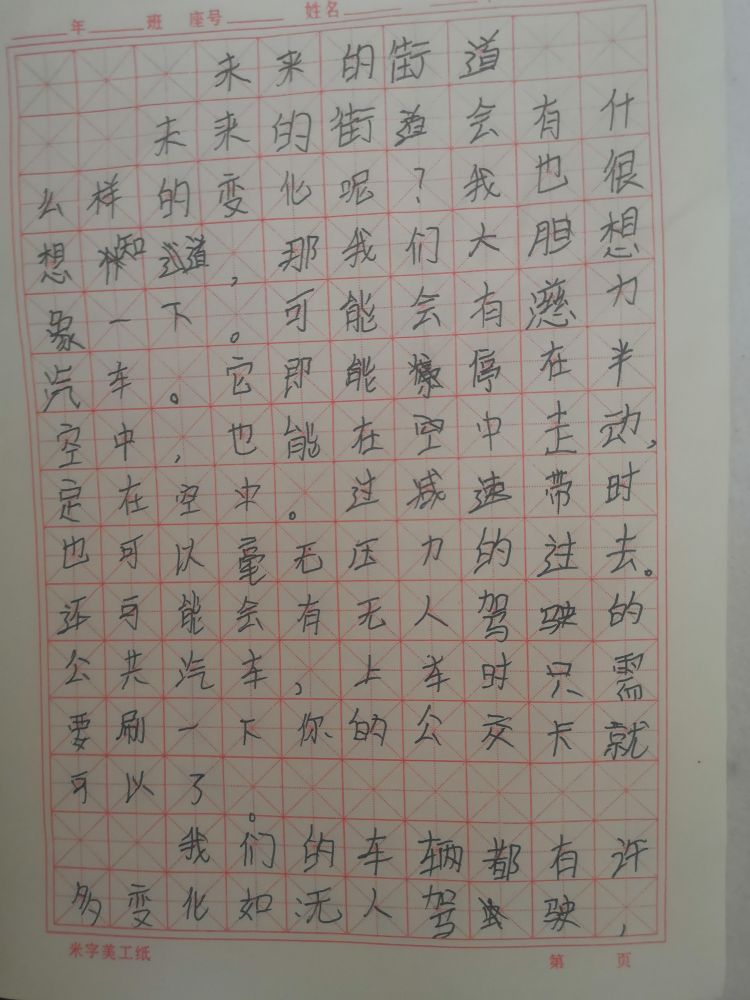 年 班 座号 姓名
未来的街道
未来的街道会有什
么样的变化呢?我也很
想知道,那我们大胆想
象一下。可能会有 力
汽车。它即能停在半
空中,也能在空中走动,
定在空中。过减速带时
也可以毫无压力的过去。
还可能会有无人驾驶的
公共汽车,上车时只需
要刷一下你的公交卡就
可以了。
我们的车辆都有许
多变化如无人驾驶,
米字美工纸 第 页